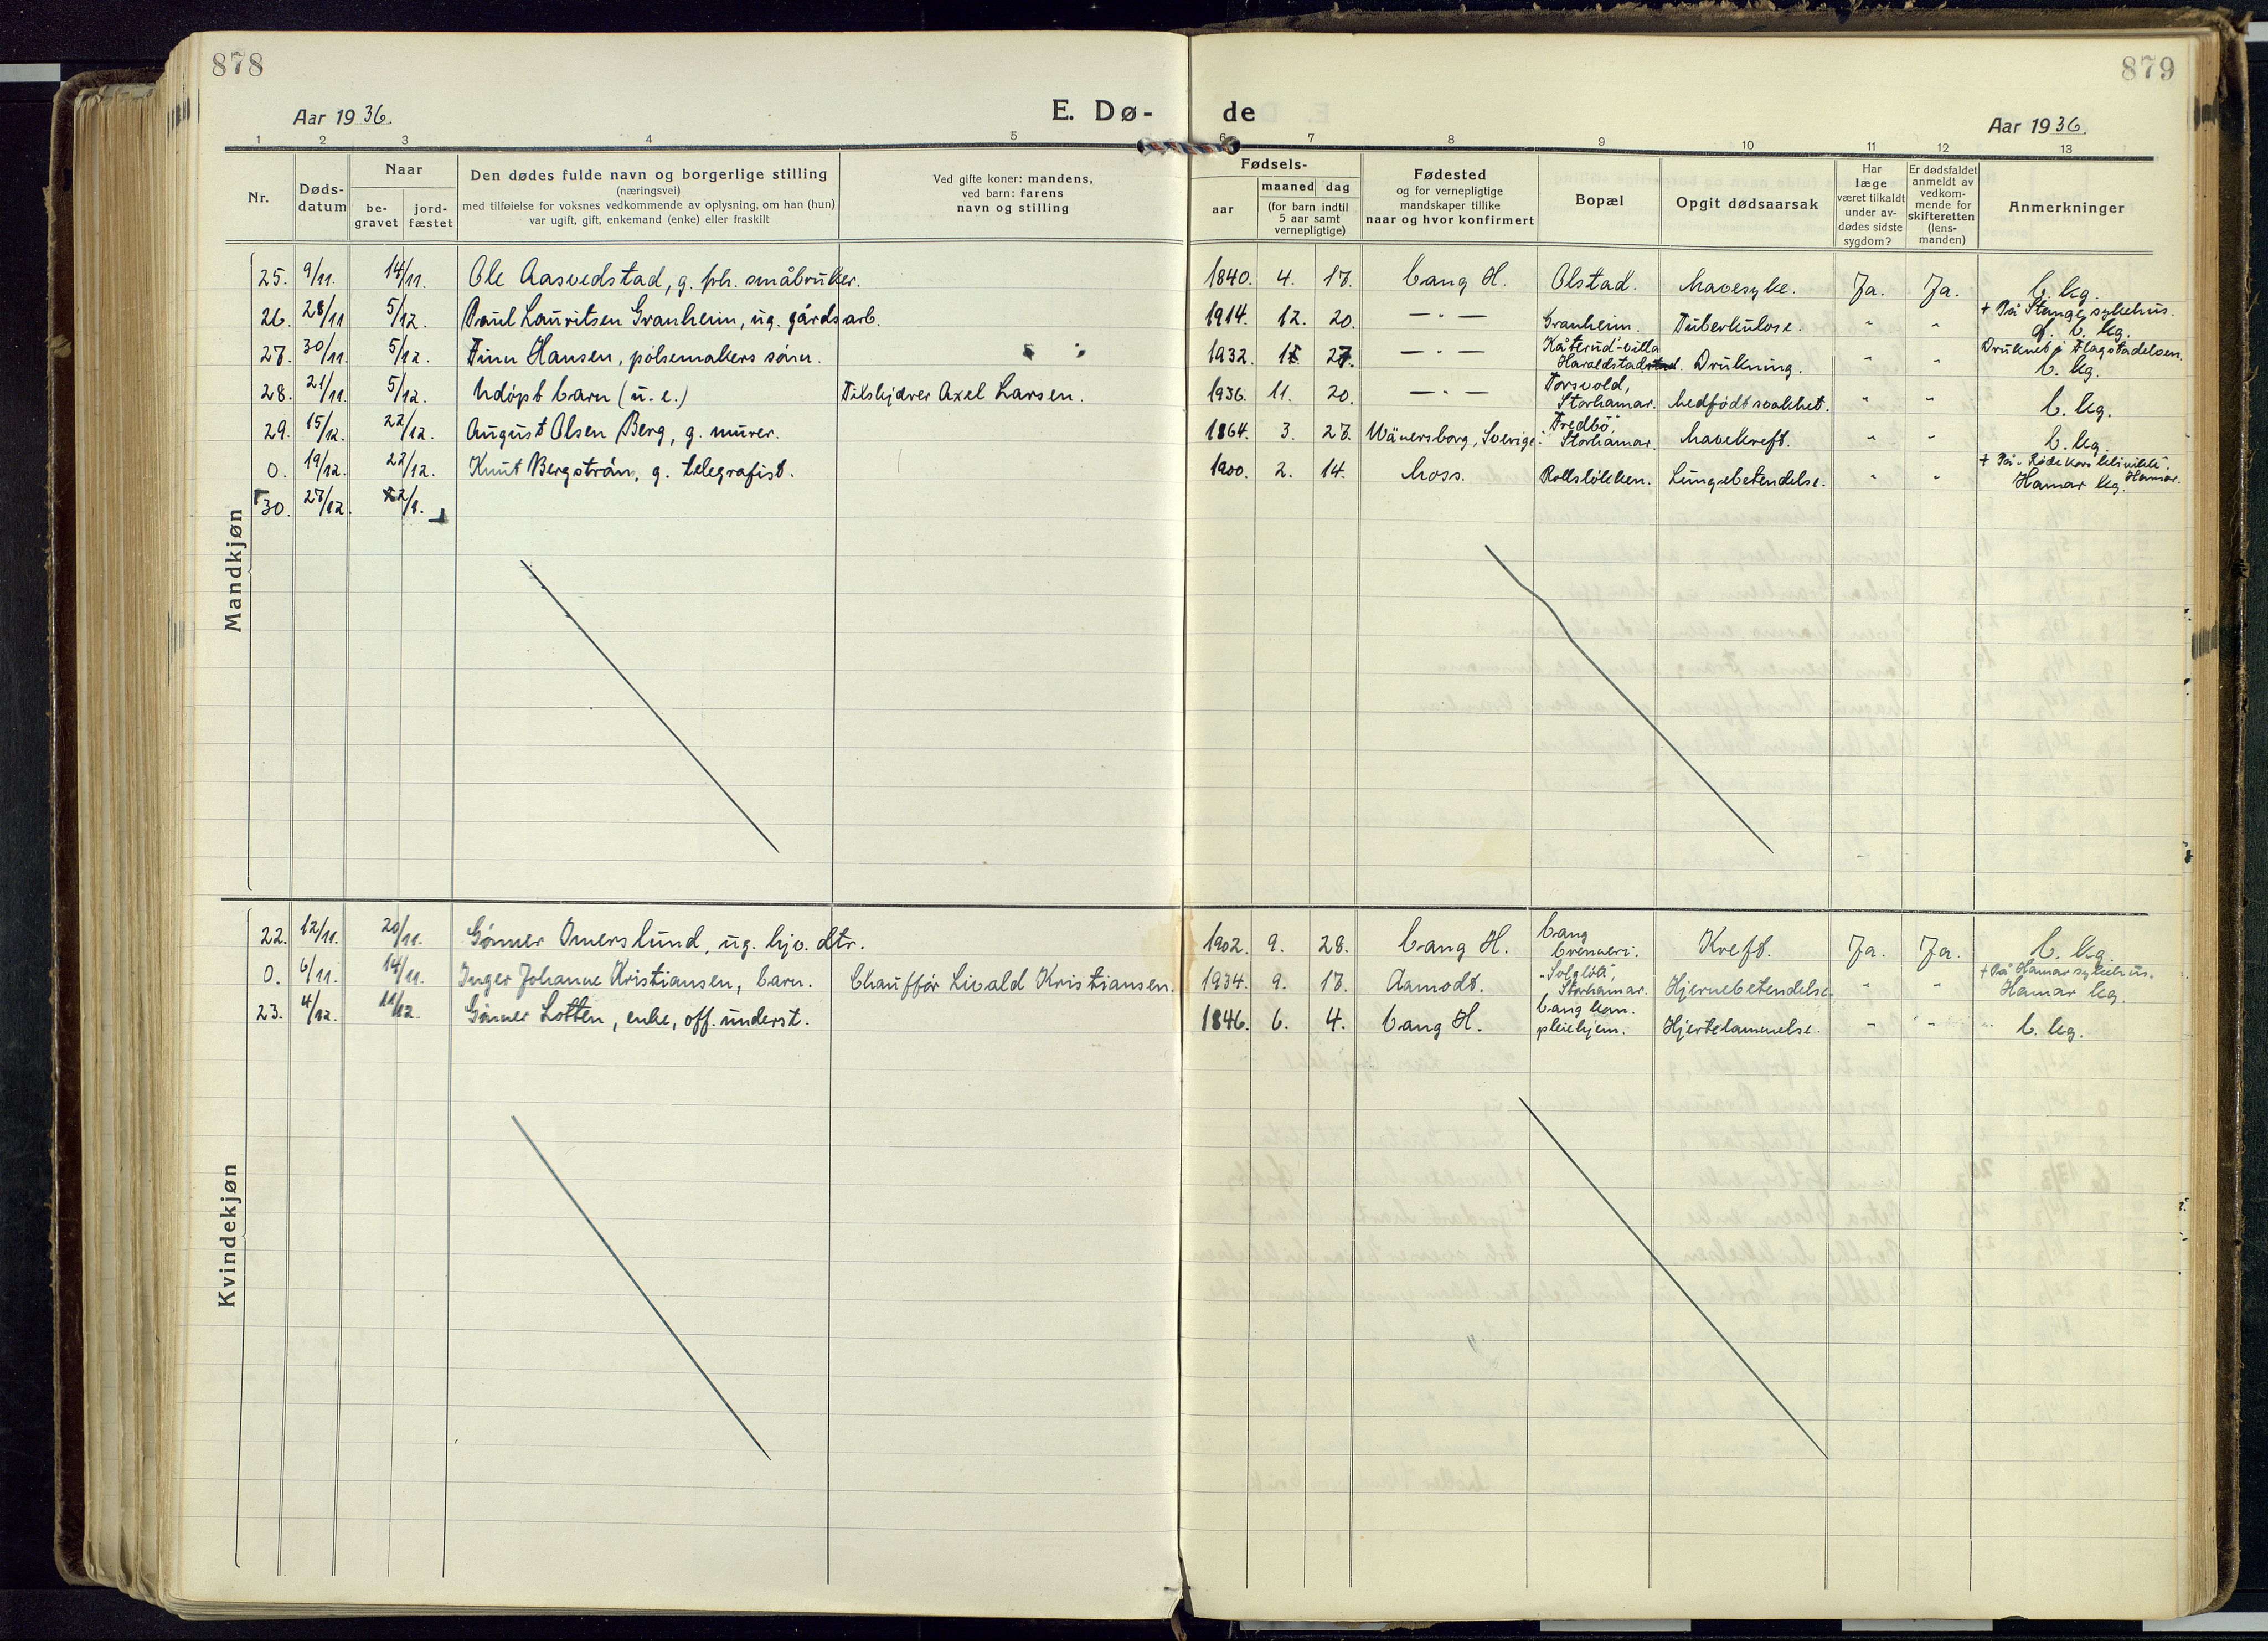 878
879
Aar 1936.
E. Dø-
de
Aar 1936.
1 2 3 4 5 6 7 8 9 10 11 12 13
Nr.
Døds-
datum
Naar
be-
gravet
jord-
fæstet
Den dødes fulde navn og borgerlige stilling
(næringsvei)
med tilføielse for voksnes vedkommende av oplysning, om han (hun)
var ugift, gift, enkemand (enke) eller fraskilt
Ved gifte koner: mandens,
ved barn: farens
navn og stilling
Fødsels-
aar
maaned dag
(for barn indtil
5 aar samt
vernepligtige)
Fødested
og for vernepligtige
mandskaper tillike
naar og hvor konfirmert
Bopæl
Opgit dødsaarsak
Har
læge
været tilkaldt
under av-
dødes sidste
sygdom?
Er dødsfaldet
anmeldt av
vedkom-
mende for
skifteretten
(lens-
manden)
Anmerkninger
Mandkjøn
25. 9/11. 14/11. Ole Aasvedstad, g. fhv. småbruker. 1840. 4. 17. Vang H. Olstad. Mavesyke. Ja. Ja. V. kg.
26. 28/11 5/12. Paul Lauritsen Granheim, ug. gårdsarb. 1914. 12. 20. — " — Granheim. Tuberkulose. " " + På Stange sykehus.
V. kg.
27. 30/11. 5/12. Finn Hansen, pølsemakers sønn. 1932. 27. — " — Kåterud-villa
Haraldstad. Drukning. " " Druknet i Flagstadelven.
V. kg.
28. 21/11. 5/12. Udøpt barn (u. e.) Tilskjærer Axel Larsen. 1936. 11. 20. — " — Torsvold,
Storhamar. Medfødt svakhet. " " V. kg.
29. 15/12. 22/12. August Olsen Berg, g. murer. 1864. 3. 27. Wänersborg, Sverige. "Fredbo",
Storhamar. Mavekreft. " " V. kg.
0. 19/12. 22/12. Knut Bergstrøm, g. telegrafist. 1900. 2. 14. Moss. Rollsløkken. Lungebetendelse. " " + På "Røde Kors klinikk", Hamar.
Hamar kg.
30. 27/12. 2/1.
Kvindekjøn
22. 12/11. 20/11. Gunner Imerslund, ug. hjv. dtr. 1902. 9. 28. Vang H. Vang
brenneri. Kreft. Ja. Ja. V. kg.
0. 6/11. 14/11. Inger Johanne Kristiansen, barn. Chauffør Sivald Kristiansen. 1934. 9. 17. Aamodt. "Solgløtt"
Storhamar. Hjernebetendelse. " " + På Hamar sykehus.
Hamar kg.
23. 4/12. 11/12. Gunner Lotten, enke, off. underst. 1846. 6. 4. Vang H. Vang kom.
pleiehjem. Hjertelammelse. " " V. kg.